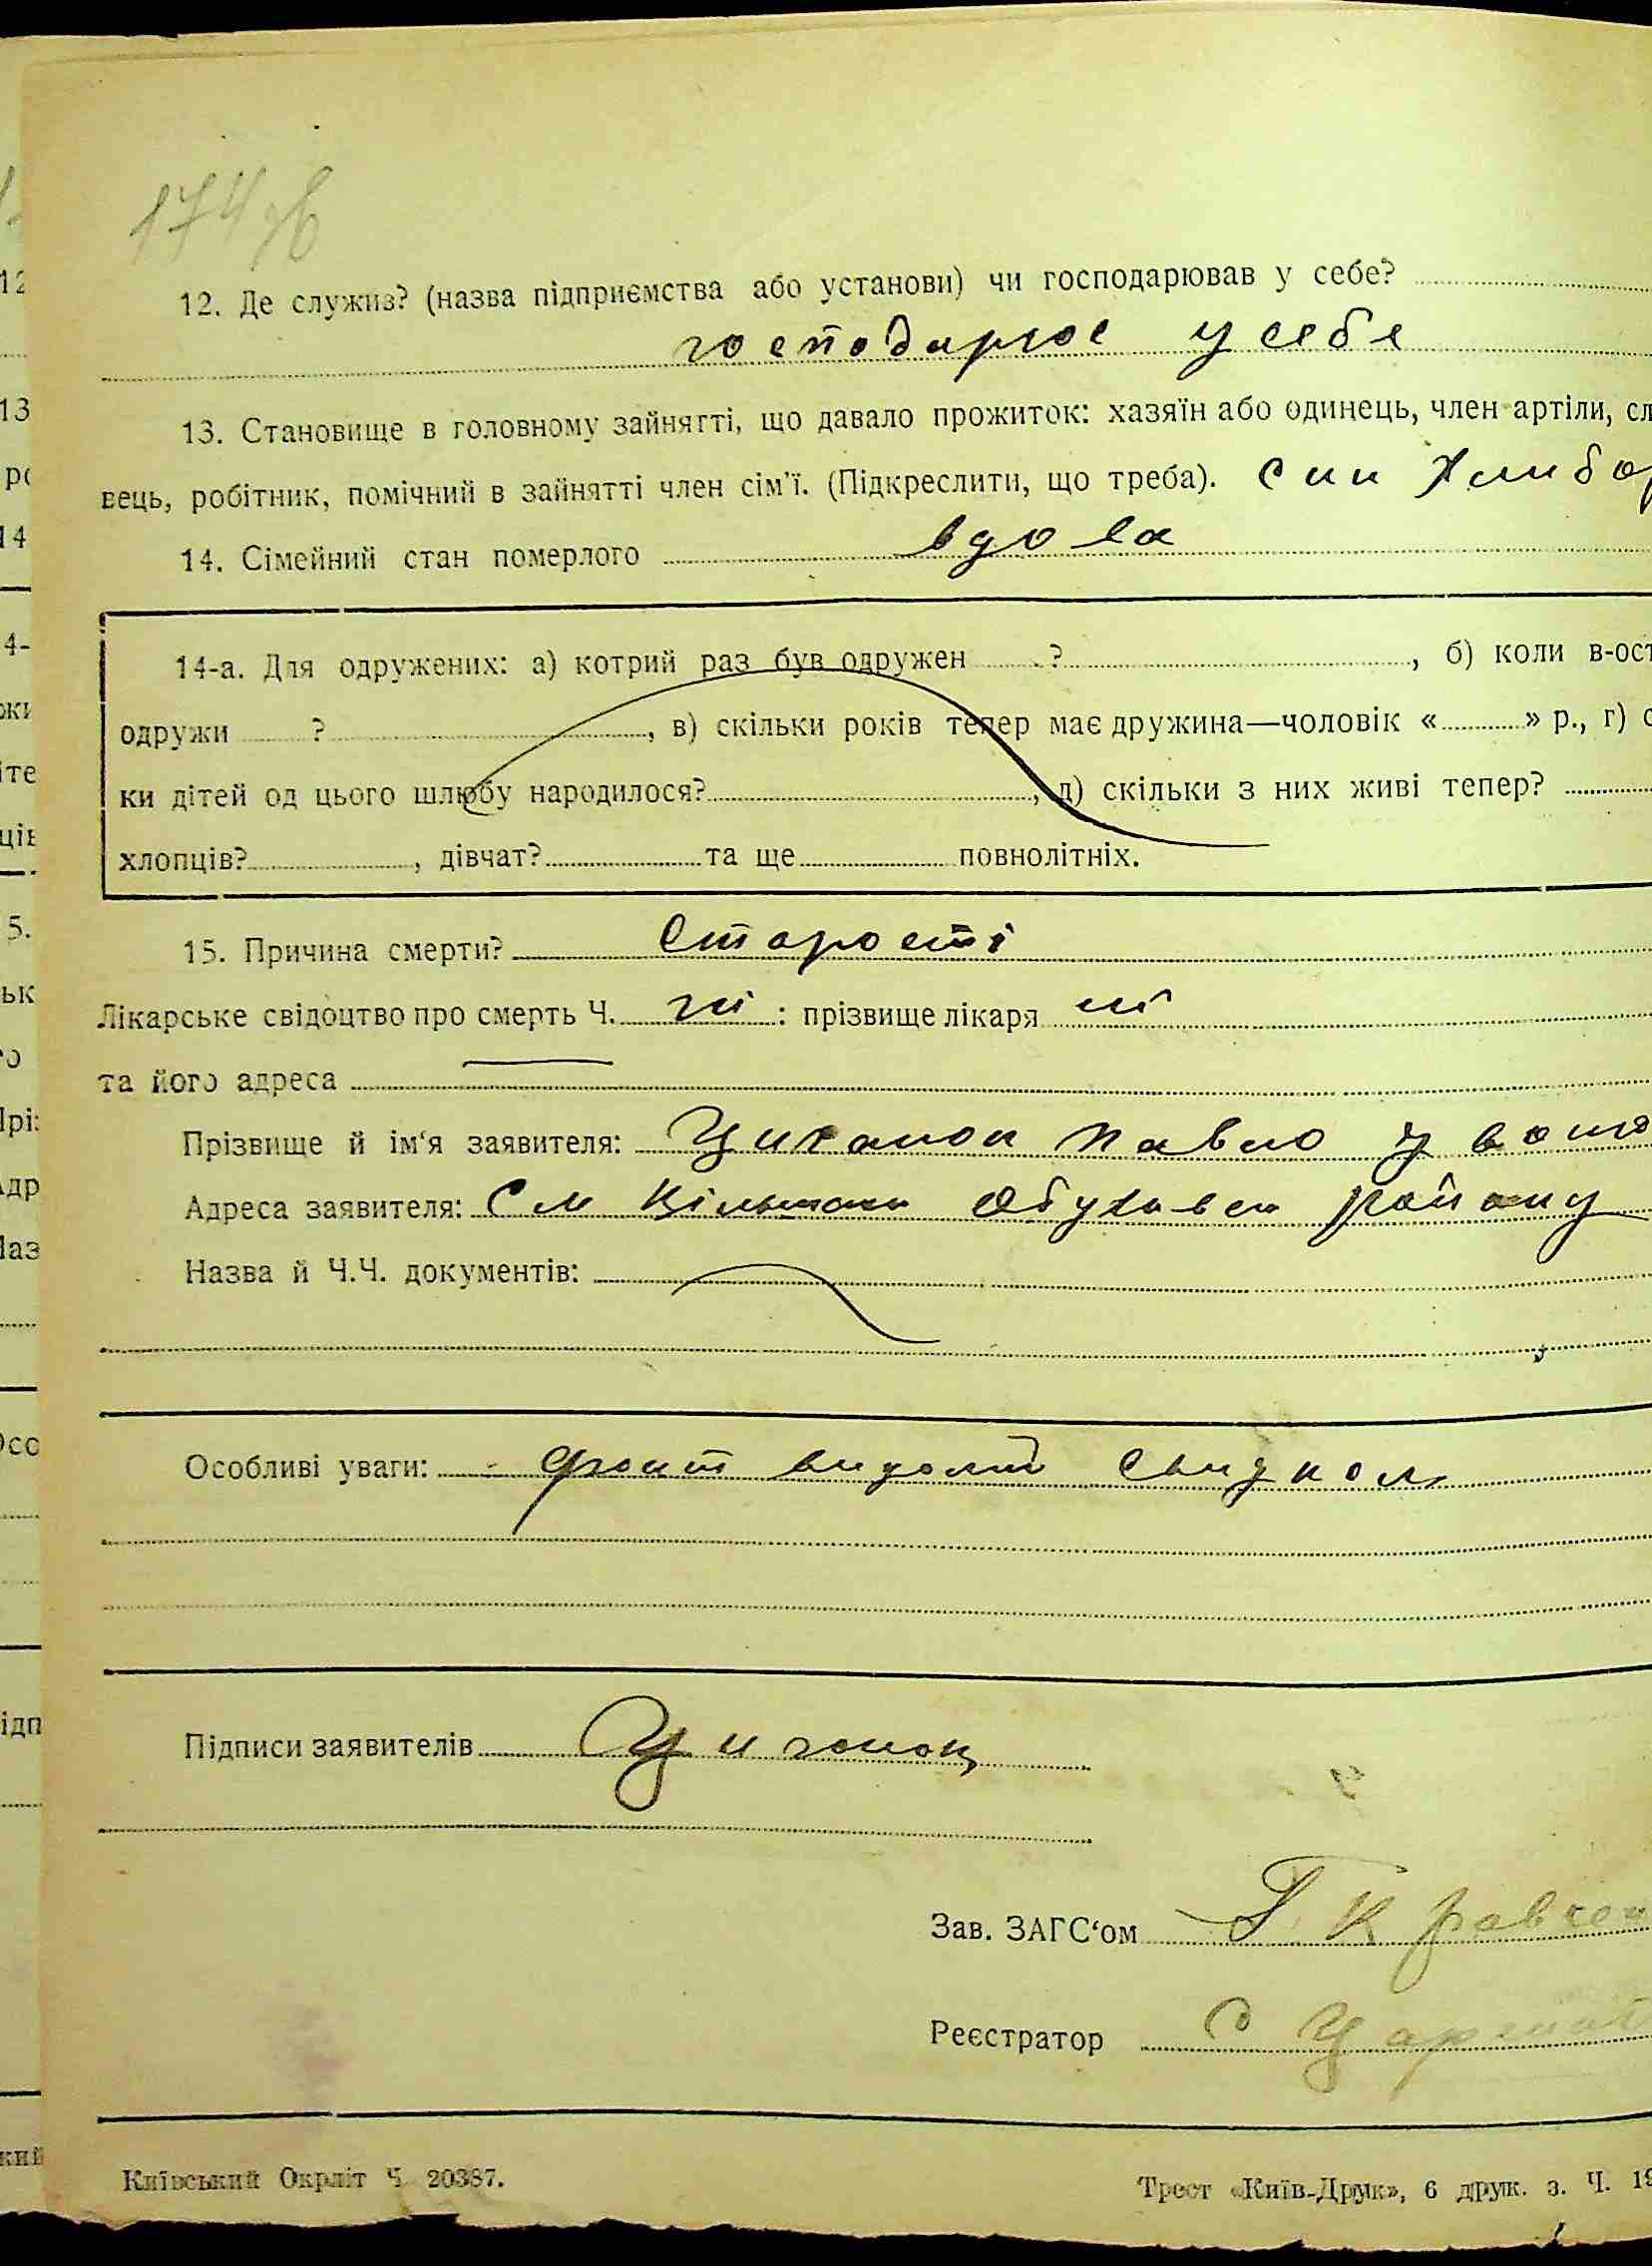 174 зв
12. Де служив? (назва підприємства або установи) чи господарював у себе?
господарює у себе
13. Становище в головному зайнятті, що давало прожиток: хазяїн або одинець, член артіли, сл
вець, робітник, помічний в зайнятті член сім'ї. (Підкреслити, що треба). Син Хлибор
14. Сімейний стан померлого вдова
14-а. Для одружених: а) котрий раз був одружен ? , б) коли в-ост
одружи ? , в) скільки років тепер має дружина—чоловік « » р., г) с
ки дітей од цього шлюбу народилося? , д) скільки з них живі тепер?
хлопців? , дівчат? та ще повнолітніх.
15. Причина смерти? Старости
Лікарське свідоцтво про смерть Ч. ні : прізвище лікаря ні
та його адреса
Прізвище й ім'я заявителя: Циганок Павло
Адреса заявителя: См Вільшанка Обухівськ району
Назва й Ч.Ч. документів:
Особливі уваги:
Підписи заявителів Циганок
Зав. ЗАГС'ом Г Кравчен
Реєстратор С
Київський Окрліт Ч 20387.
Трест «Київ-Друк», 6 друк. з. Ч. 19